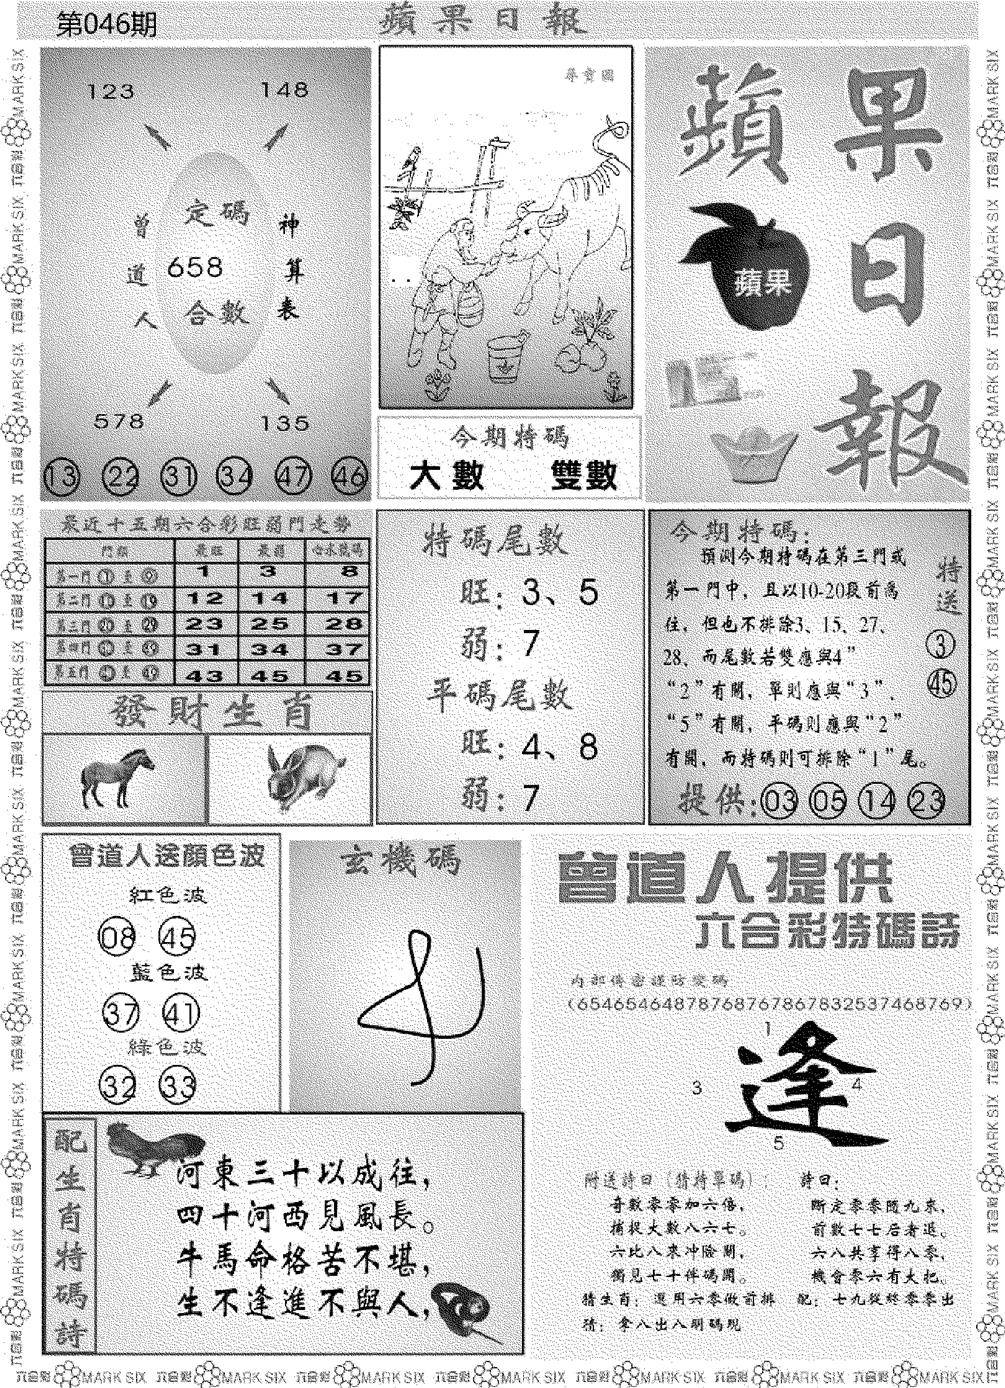 第046期
蘋果日報
123
148
定碼
曾道人
658
神算表
合數
578
135
13 22 31 34 47 46
尋寶圖
今期特碼
大數 雙數
蘋果日報
蘋果
最近十五期六合彩旺弱門走勢
門類 最旺 最弱
第一門 ① 至 ⑨ 1 3 8
第二門 至 19 12 14 17
第三門 20 至 29 23 25 28
第四門 至 31 34 37
第五門 至 43 45 45
發財生肖
特碼尾數
旺: 3、5
弱: 7
平碼尾數
旺: 4、8
弱: 7
今期特碼:
預測今期特碼在第三門或
第一門中，且以10-20段前為
住，但也不排除3、15、27、
28、而尾數若雙應與4”
“2”有關，單則應與“3”、
“5”有關，平碼則應與“2”
有關，而特碼則可排除“1”尾。
特送
3
45
提供: 03 05 14 23
曾道人送顏色波
紅色波
08 45
藍色波
37 41
綠色波
32 33
玄機碼
曾道人提供
六合彩特碼詩
內部傳密謹防變碼
(65465464878768767867832537468769)
1
逢
3
4
5
配生肖特碼詩
河東三十以成往，
四十河西見風長。
牛馬命格苦不堪，
生不逢進不與人，
附送詩曰（猜特單碼）:
奇數零零加六倍，
捕捉大數八六七。
六比八來沖險關，
獨見七十伴碼開。
猜生肖：選用六零做前排
猜：拿八出八明碼現
詩曰:
斷定零零隨九來，
前數七七后者退。
六八共享得八零，
機會零六有大把。
配：七九從終零零出
六合彩 MARK SIX